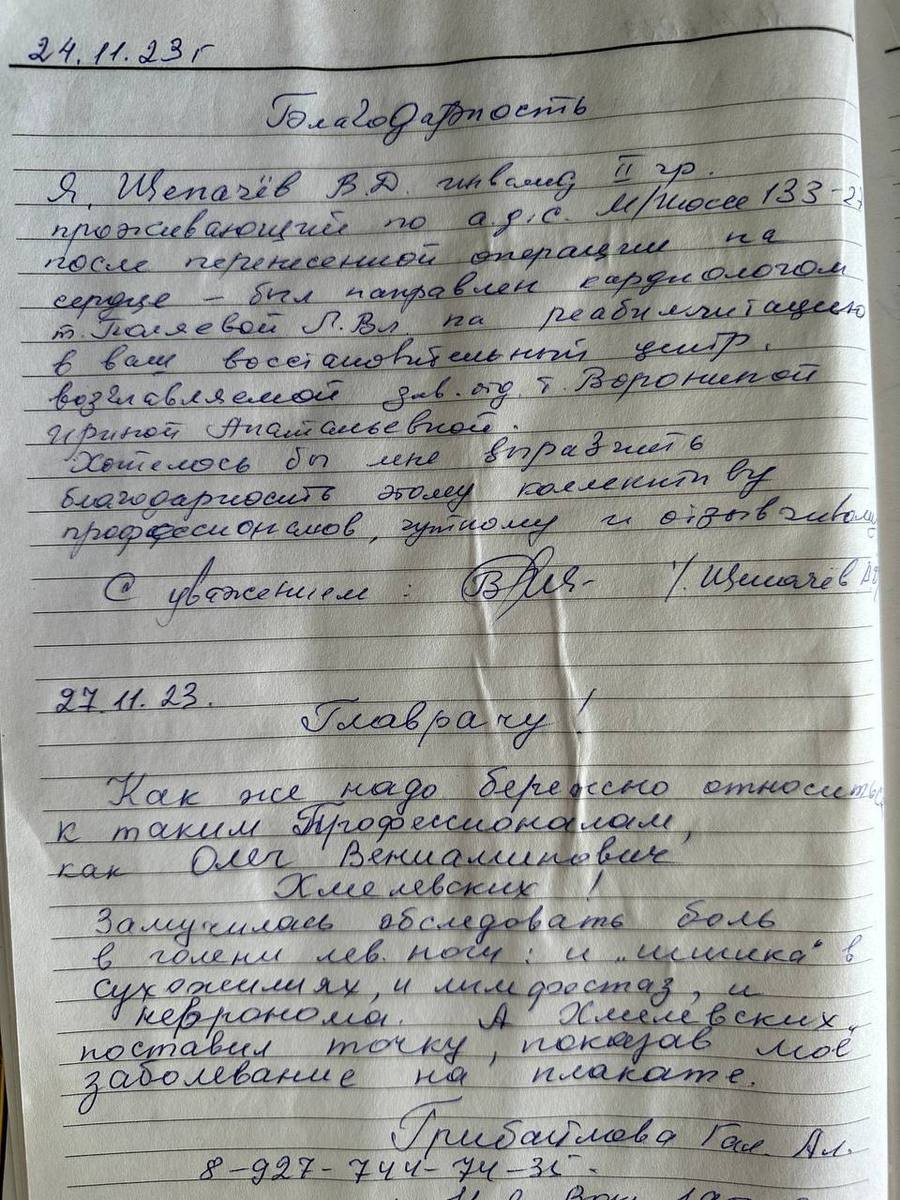 24.11.23 г
Благодарность
Я, Щепачёв В.Д. инвалид II гр.
проживающий по а.д.с. М/шоссе 133-2
после перенесенной операции на
сердце – был направлен кардиологом
т. Поляевой Л.Вл. на реабилитацию
в ваш восстановительный центр.
возглавляемой зав. отд. т. Ворониной
Ириной Анатольевной.
Хотелось бы мне выразить
благодарность этому коллективу
профессионалов, чуткому и отзывчивому
С уважением: /. Щепачёв
27.11.23.
Главрачу!
Как же надо бережно относиться
к таким Профессионалам,
как Олег Вениаминович
Хмелевских!
Замучилась обследовать боль
в голени лев. ноги: и „шишка" в
сухожилиях, и лимфостаз, и
невронома. А Хмелевских
поставил точку, показав мое
заболевание на плакате.
Грибайлова Гал. Ал.
8-927-744-74-35